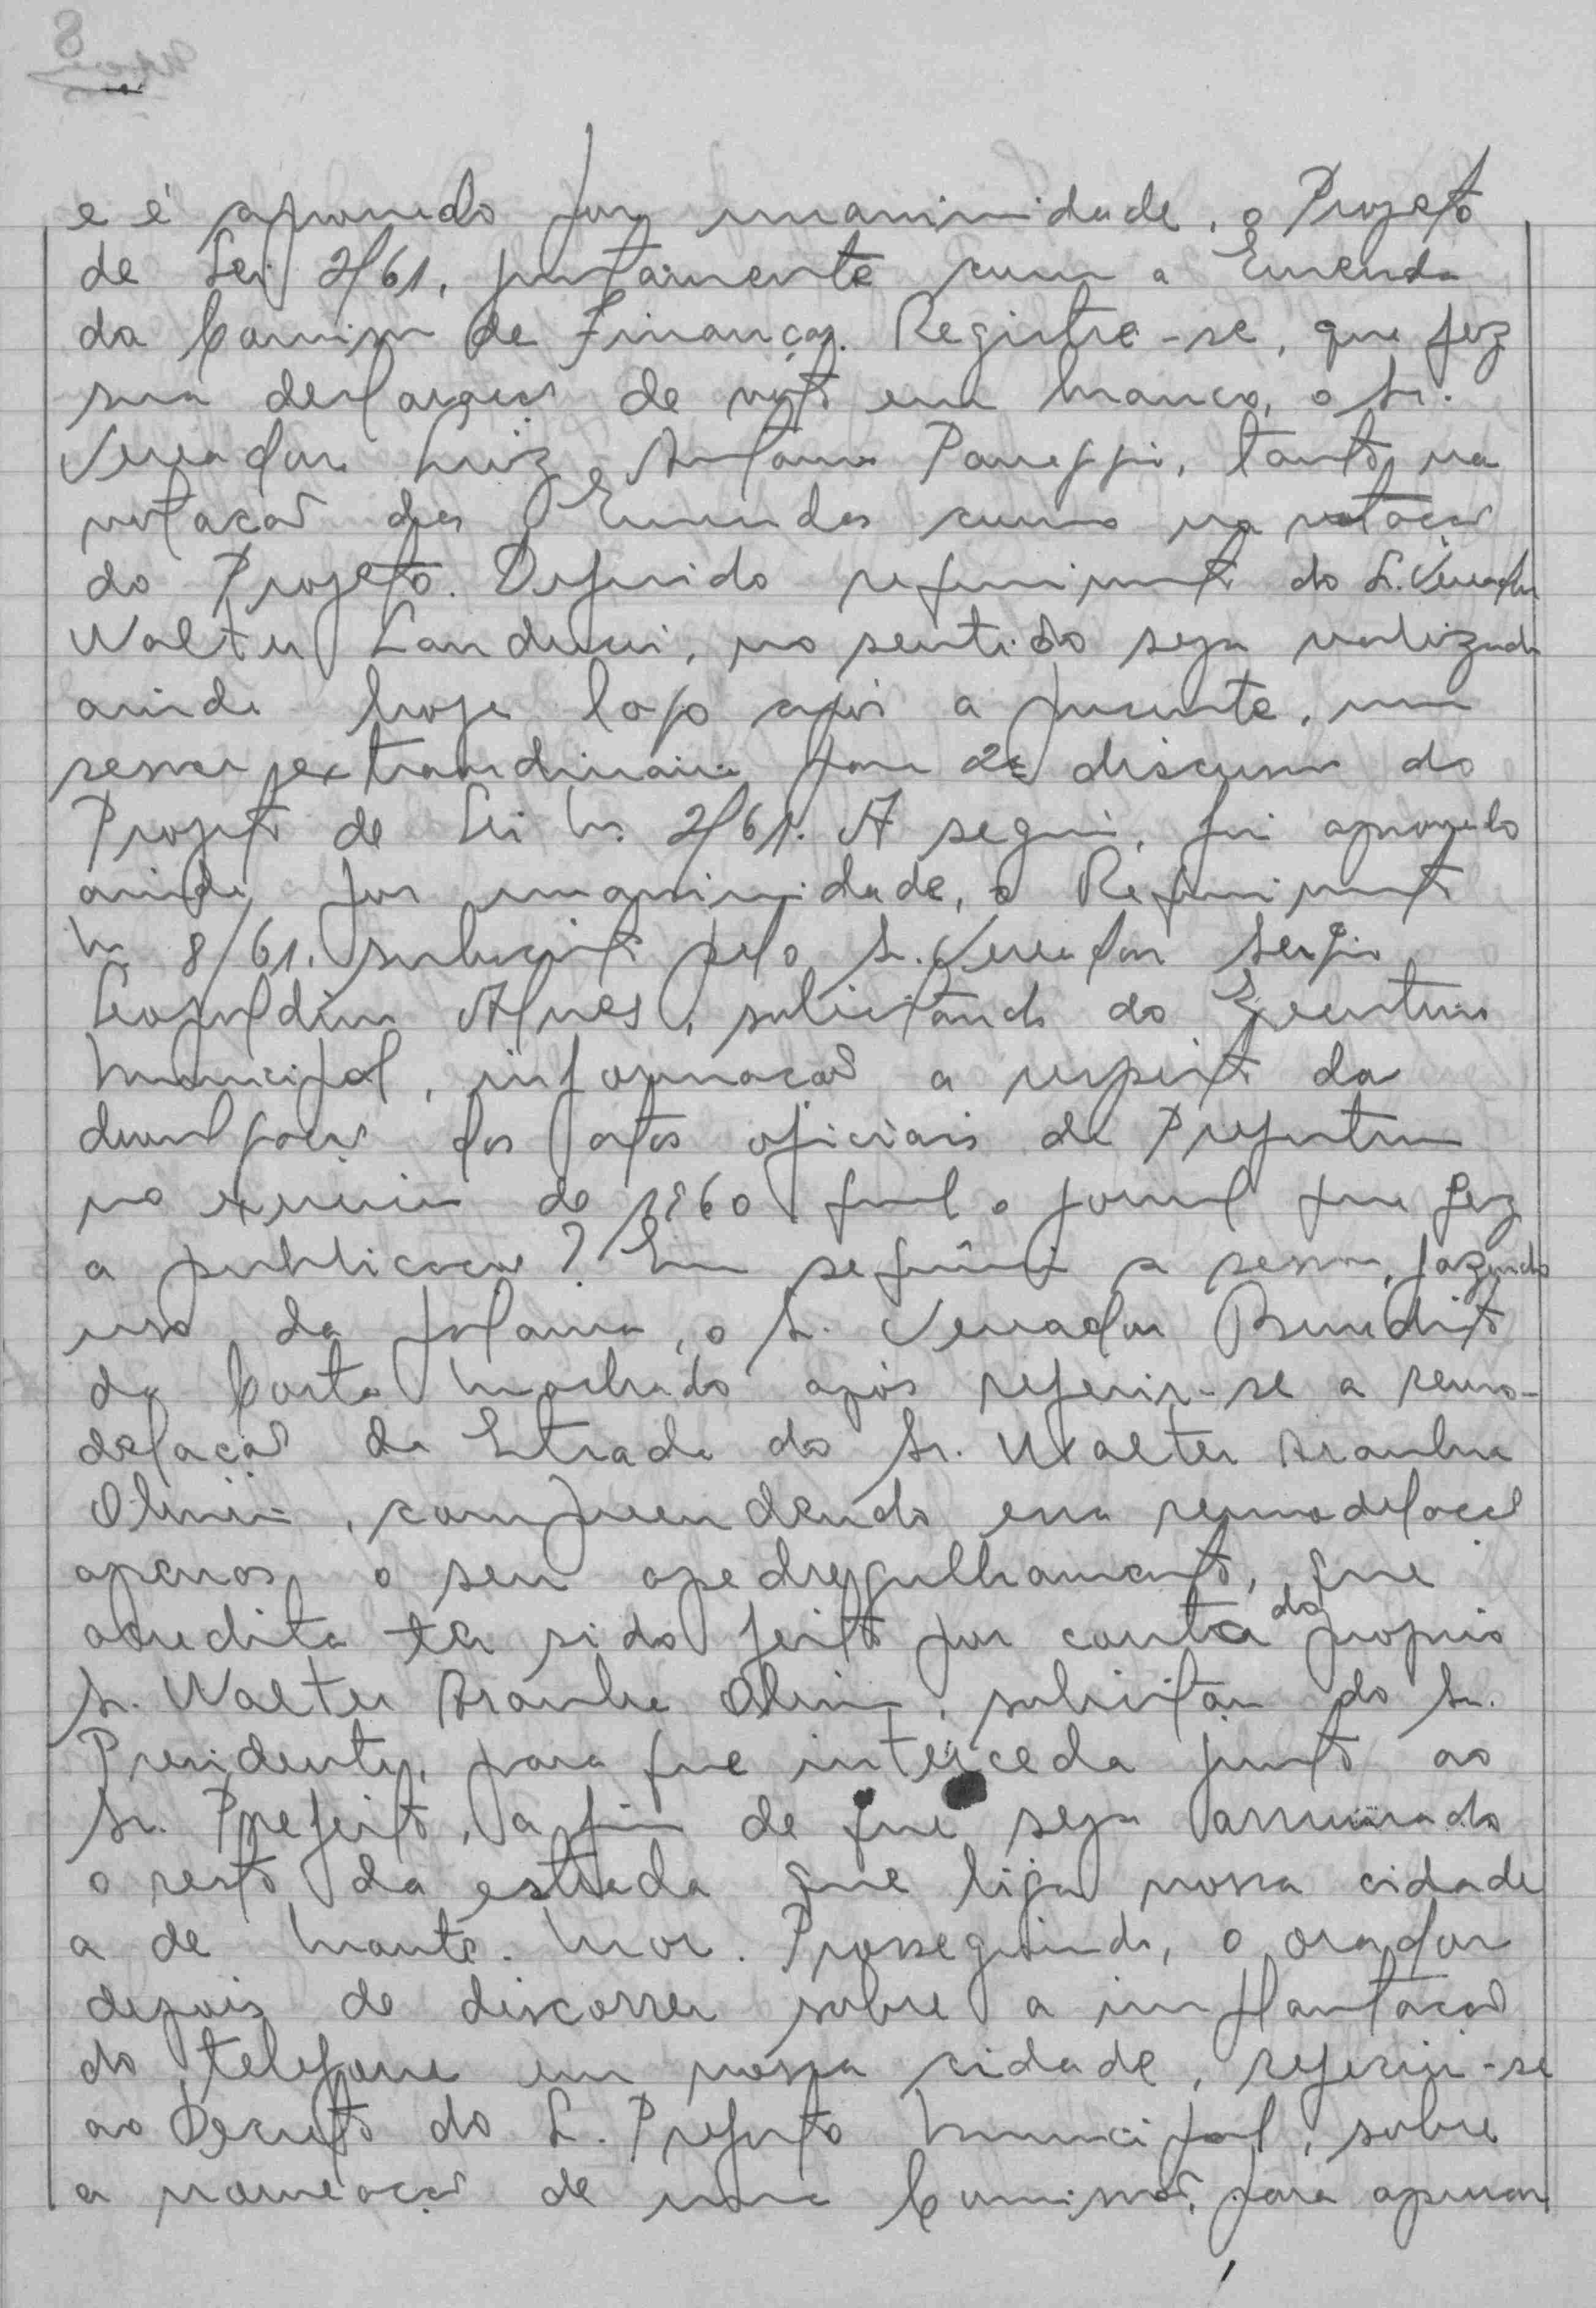 e é aprovado por unanimidade, o Projeto
de Lei 2/61, juntamente com a Emenda
da Comissão de Finanças. Registre-se, que fez
sua declaração de voto em branco, o Sr.
Vereador Luiz Antonio, tanto na
votação das Emendas como na votação
do Projeto. Deferido requerimento do Sr. Vereador
Walter Landucci, no sentido seja realizada
ainda hoje logo após a presente, uma
sessão extraordinária para 2ª discussão do
Projeto de Lei nº 2/61. A seguir, foi aprovado
ainda por unanimidade, o Requerimento
nº 8/61, subscrito pelo Sr. Vereador Sergio
Leopoldino Alves, solicitando do Executivo
Municipal, informação a respeito da
divulgação dos atos oficiais da Prefeitura
no exercício de 1960 qual o jornal que fez
a publicação? Em seguimento a sessão, fazendo
uso da palavra, o Sr. Vereador Benedito
da Costa Machado após referir-se a remo-
delação da Estrada do Sr. Walter Aranha
Olivio, compreendendo essa remodelação
apenas o seu apedregulhamento, que
acredita ter sido feito por conta do proprio
Sr. Walter Aranha, solicitou do Sr.
Presidente, para que interceda junto ao
Sr. Prefeito, a fim de que seja arrumado
o resto da estrada que liga nossa cidade
a de Monte-Mor. Prosseguindo, o orador
depois de discorrer sobre a implantação
do telefone em nossa cidade, referiu-se
ao Decreto do Sr. Prefeito Municipal, sobre
a nomeação de uma Comissão, para apurar